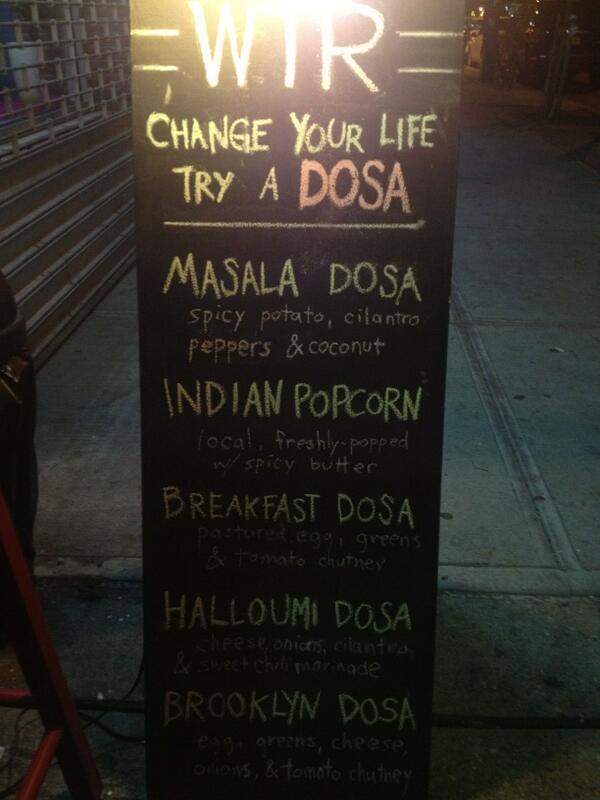 WTR
CHANGE YOUR LIFE
TRY A DOSA
MASALA DOSA
spicy potato, cilantro
peppers & coconut
INDIAN POPCORN
local, freshly-popped
w/ spicy butter
BREAKFAST DOSA
pastured egg, greens
& tomato chutney
HALLOUMI DOSA
cheese, onions, cilantro,
& sweet chili marinade
BROOKLYN DOSA
egg, greens, cheese,
onions, & tomato chutney